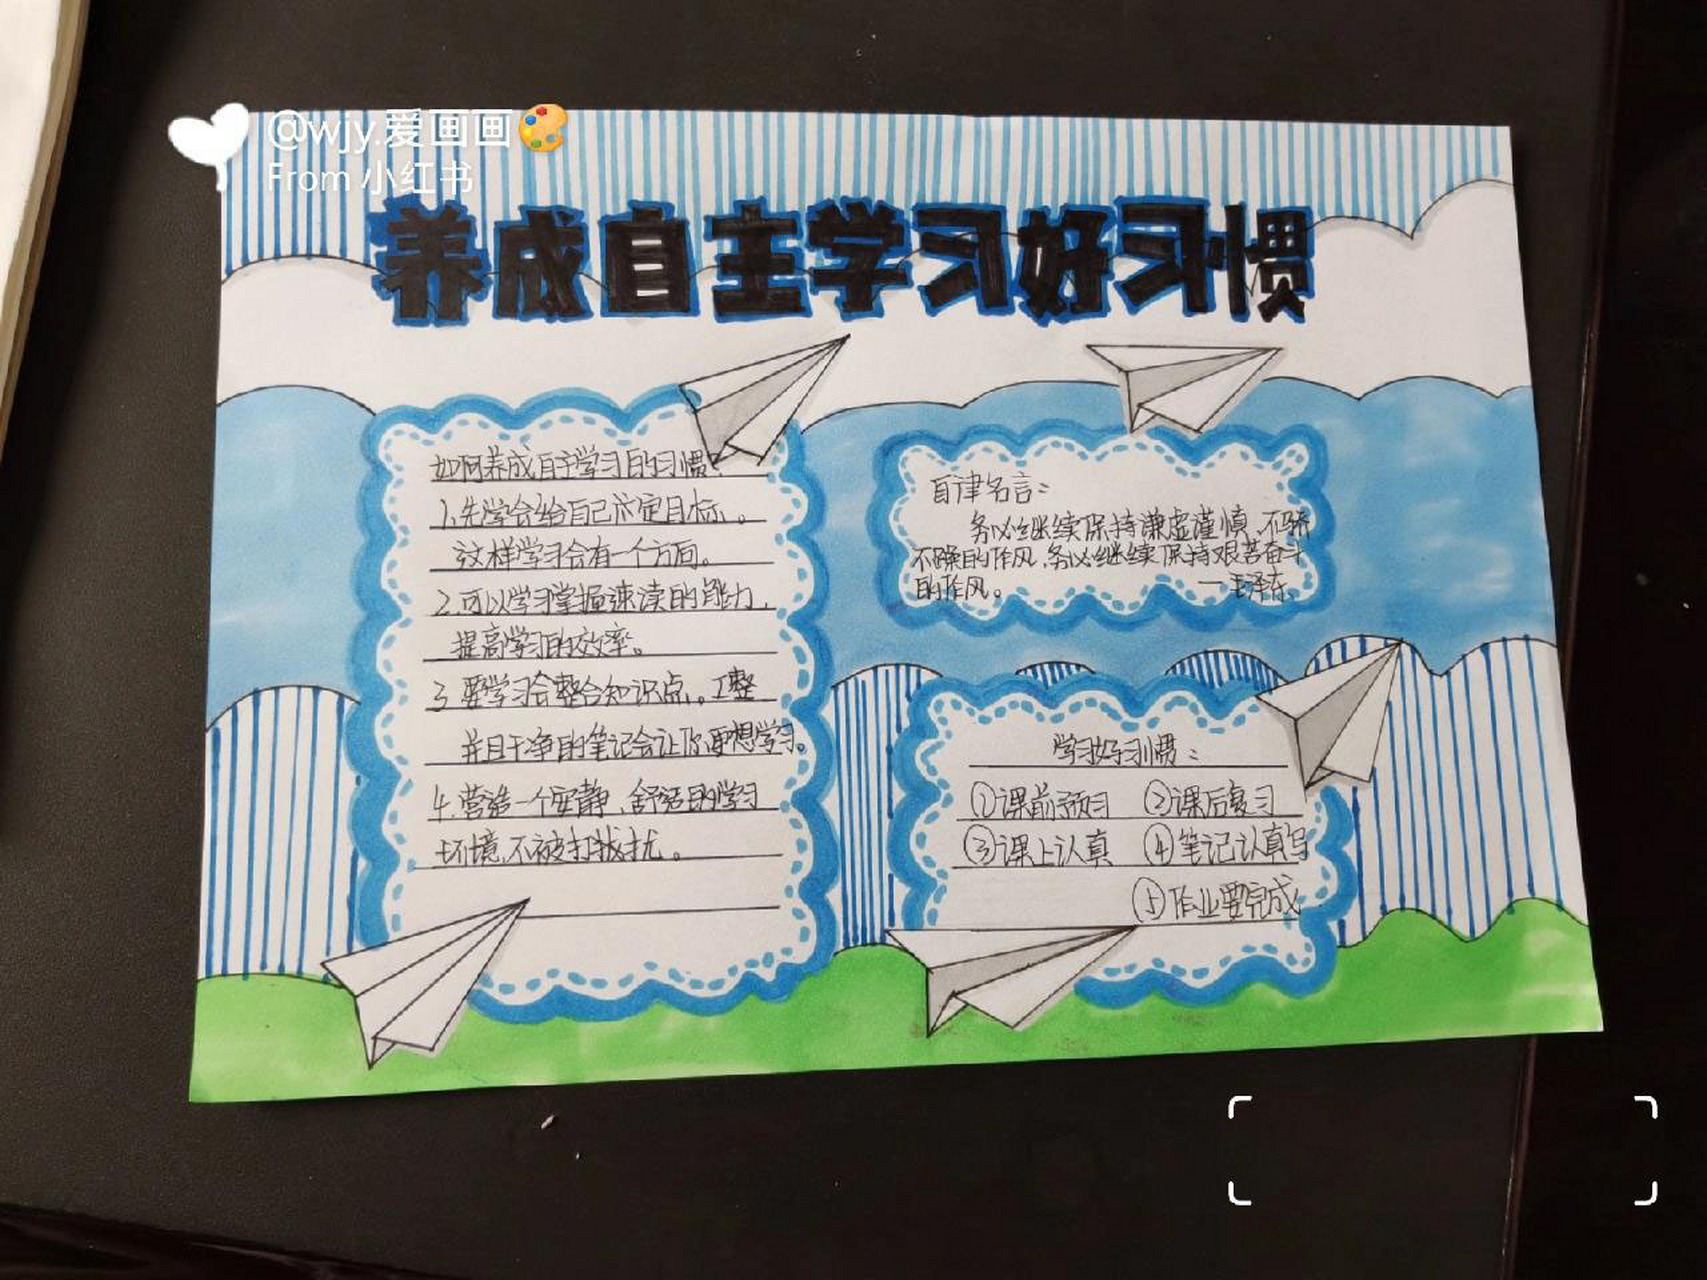 @wjy.爱画画
From 小红书
养成自主学习好习惯
如何养成自主学习的习惯?
1.先学会给自己定目标。
这样学习会有一个方向。
2.可以学习掌握速读的能力,
提高学习的效率。
3.要学习会整合知识点。工整
并且干净的笔记会让你更想学习。
4.营造一个安静、舒适的学习
环境,不被打扰。
自律名言:
务必继续保持谦虚谨慎、不骄
不躁的作风,务必继续保持艰苦奋斗
的作风。 —毛泽东
学习好习惯:
①课前预习 ②课后复习
③课上认真 ④笔记认真写
⑤作业要完成